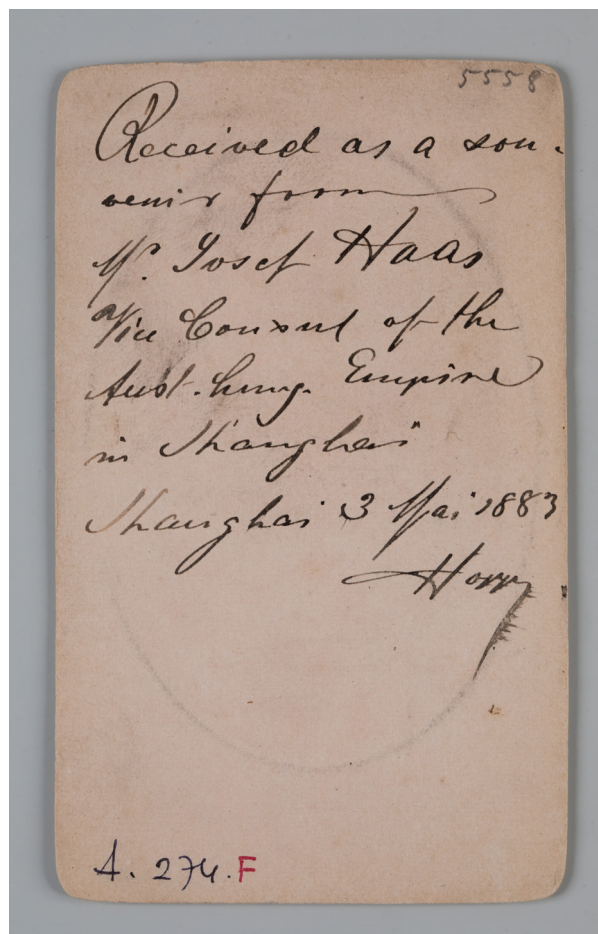 5558
Received as a sou-
venir from
Mr. Josef Haas
Vice Consul of the
Aust. hung. Empire
in Shanghai
Shanghai 3 Mai 1883
Hopp
A. 274. F